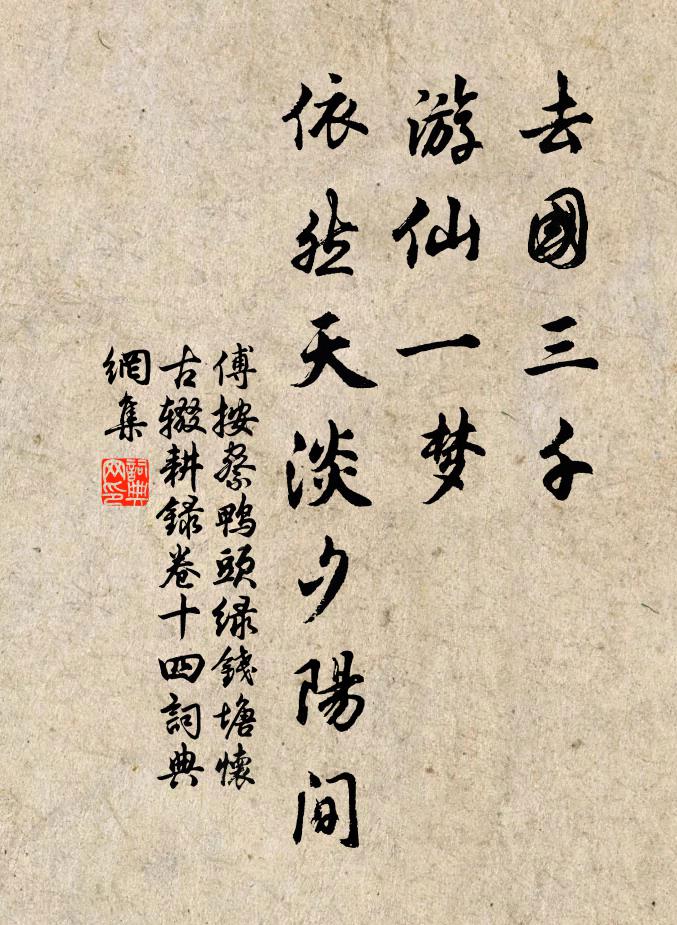 去國三千
游仙一梦
依然天淡夕陽間
傅按察鴨頭緑錢塘懷
古辍耕録卷十四詞典
網集
詞典
网印